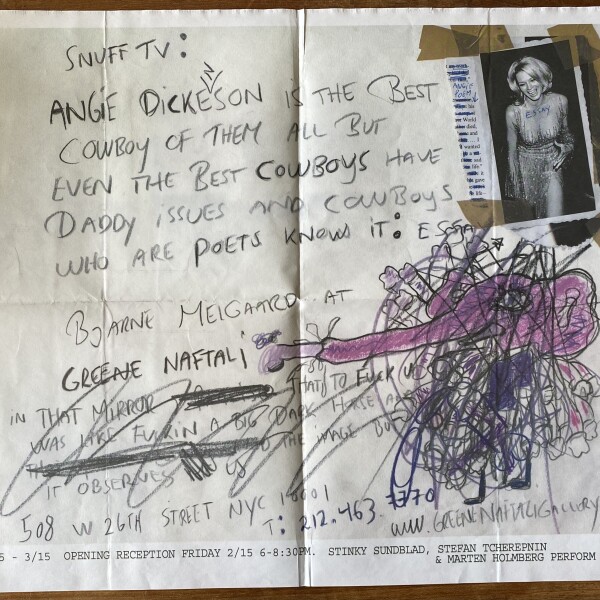 SNUFF TV:
ANGIE DICKENSON IS THE BEST
COWBOY OF THEM ALL BUT
EVEN THE BEST COWBOYS HAVE
DADDY ISSUES AND COWBOYS
WHO ARE POETS KNOWS IT: ESSAY
ANGIE
POEM
World
died,
and
wanted
and
life"
gave
life
BJARNE MELGAARD AT
GREENE NAFTALI
IN THAT MIRROR THAT TO FUCK U
WAS LIKE FUKIN A BIG DARK HORSE AS
THE IMAGE BUT
IT OBSERVES US
508 W 26TH STREET NYC 10001
T: 212.463.7770
WWW.GREENENAFTALIGALLERY
5 - 3/15 OPENING RECEPTION FRIDAY 2/15 6-8:30PM. STINKY SUNDBLAD, STEFAN TCHEREPNIN
& MARTEN HOLMBERG PERFORM